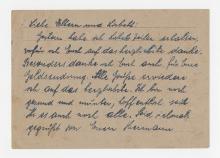 Liebe Eltern und Lisbeth!
Gestern habe ich Liebste Zeilen erhalten,
wofür ich Euch auf das herzlichste danke.
Besonders danke ich Euch auch für Eure
Geldsendung. Alle Grüße erwidere
ich auf das herzlichste. Ich bin noch
gesund und munter, hoffentlich seid
Ihr es auch noch alle. Seid vielmals
gegrüßt von Euren Hermann